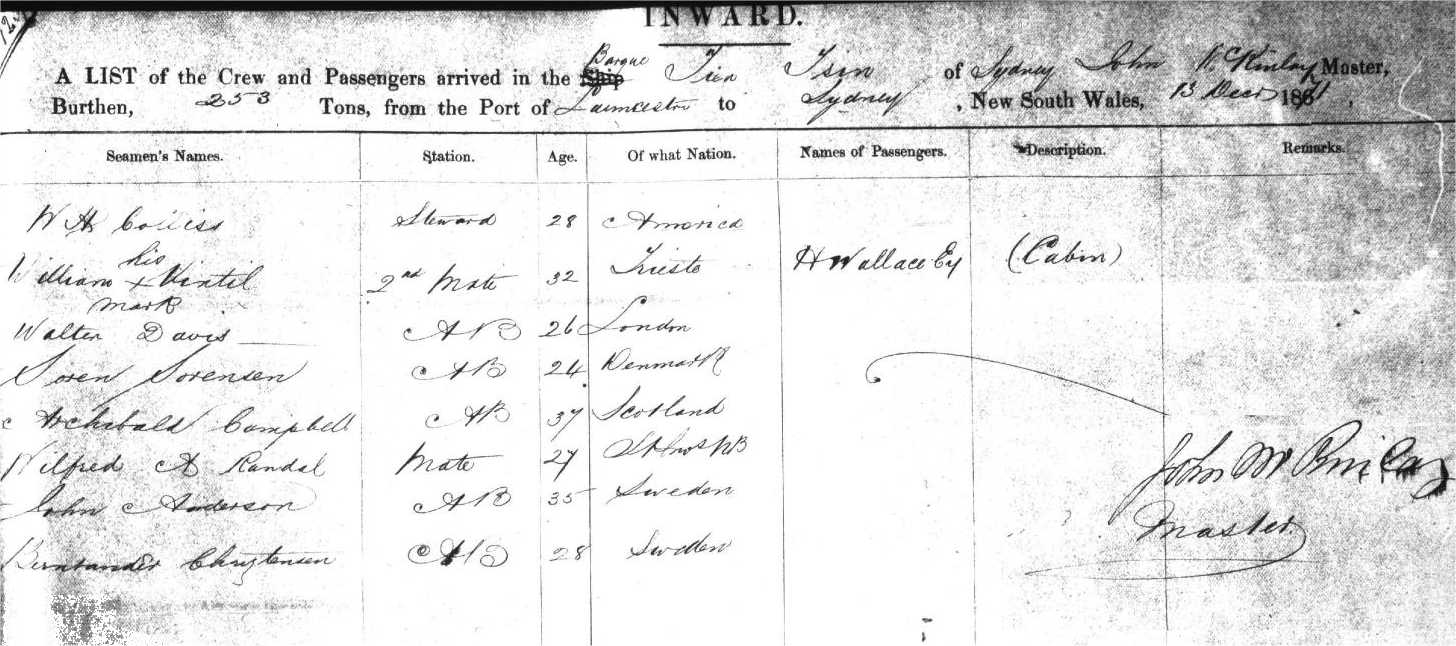 INWARD.
Barque
A LIST of the Crew and Passengers arrived in the Ship Tien Tsin of Sydney John McKinlay Master,
Burthen, 253 Tons, from the Port of Launceston to Sydney, New South Wales, 13 Decr 1861.
Seamen's Names. Station. Age. Of what Nation. Names of Passengers. Description. Remarks.
W H Steward 28 America
his
William x Vintil 2nd Mate 32 Trieste H Wallace Esq (Cabin)
mark
Walter Davis AB 26 London
Soren Sorensen AB 24 Denmark
Archibald Campbell AB 37 Scotland
Wilfred A Randal Mate 27 NB
John Anderson AB 35 Sweden
Christensen AB 28 Sweden
John McKinlay
Master